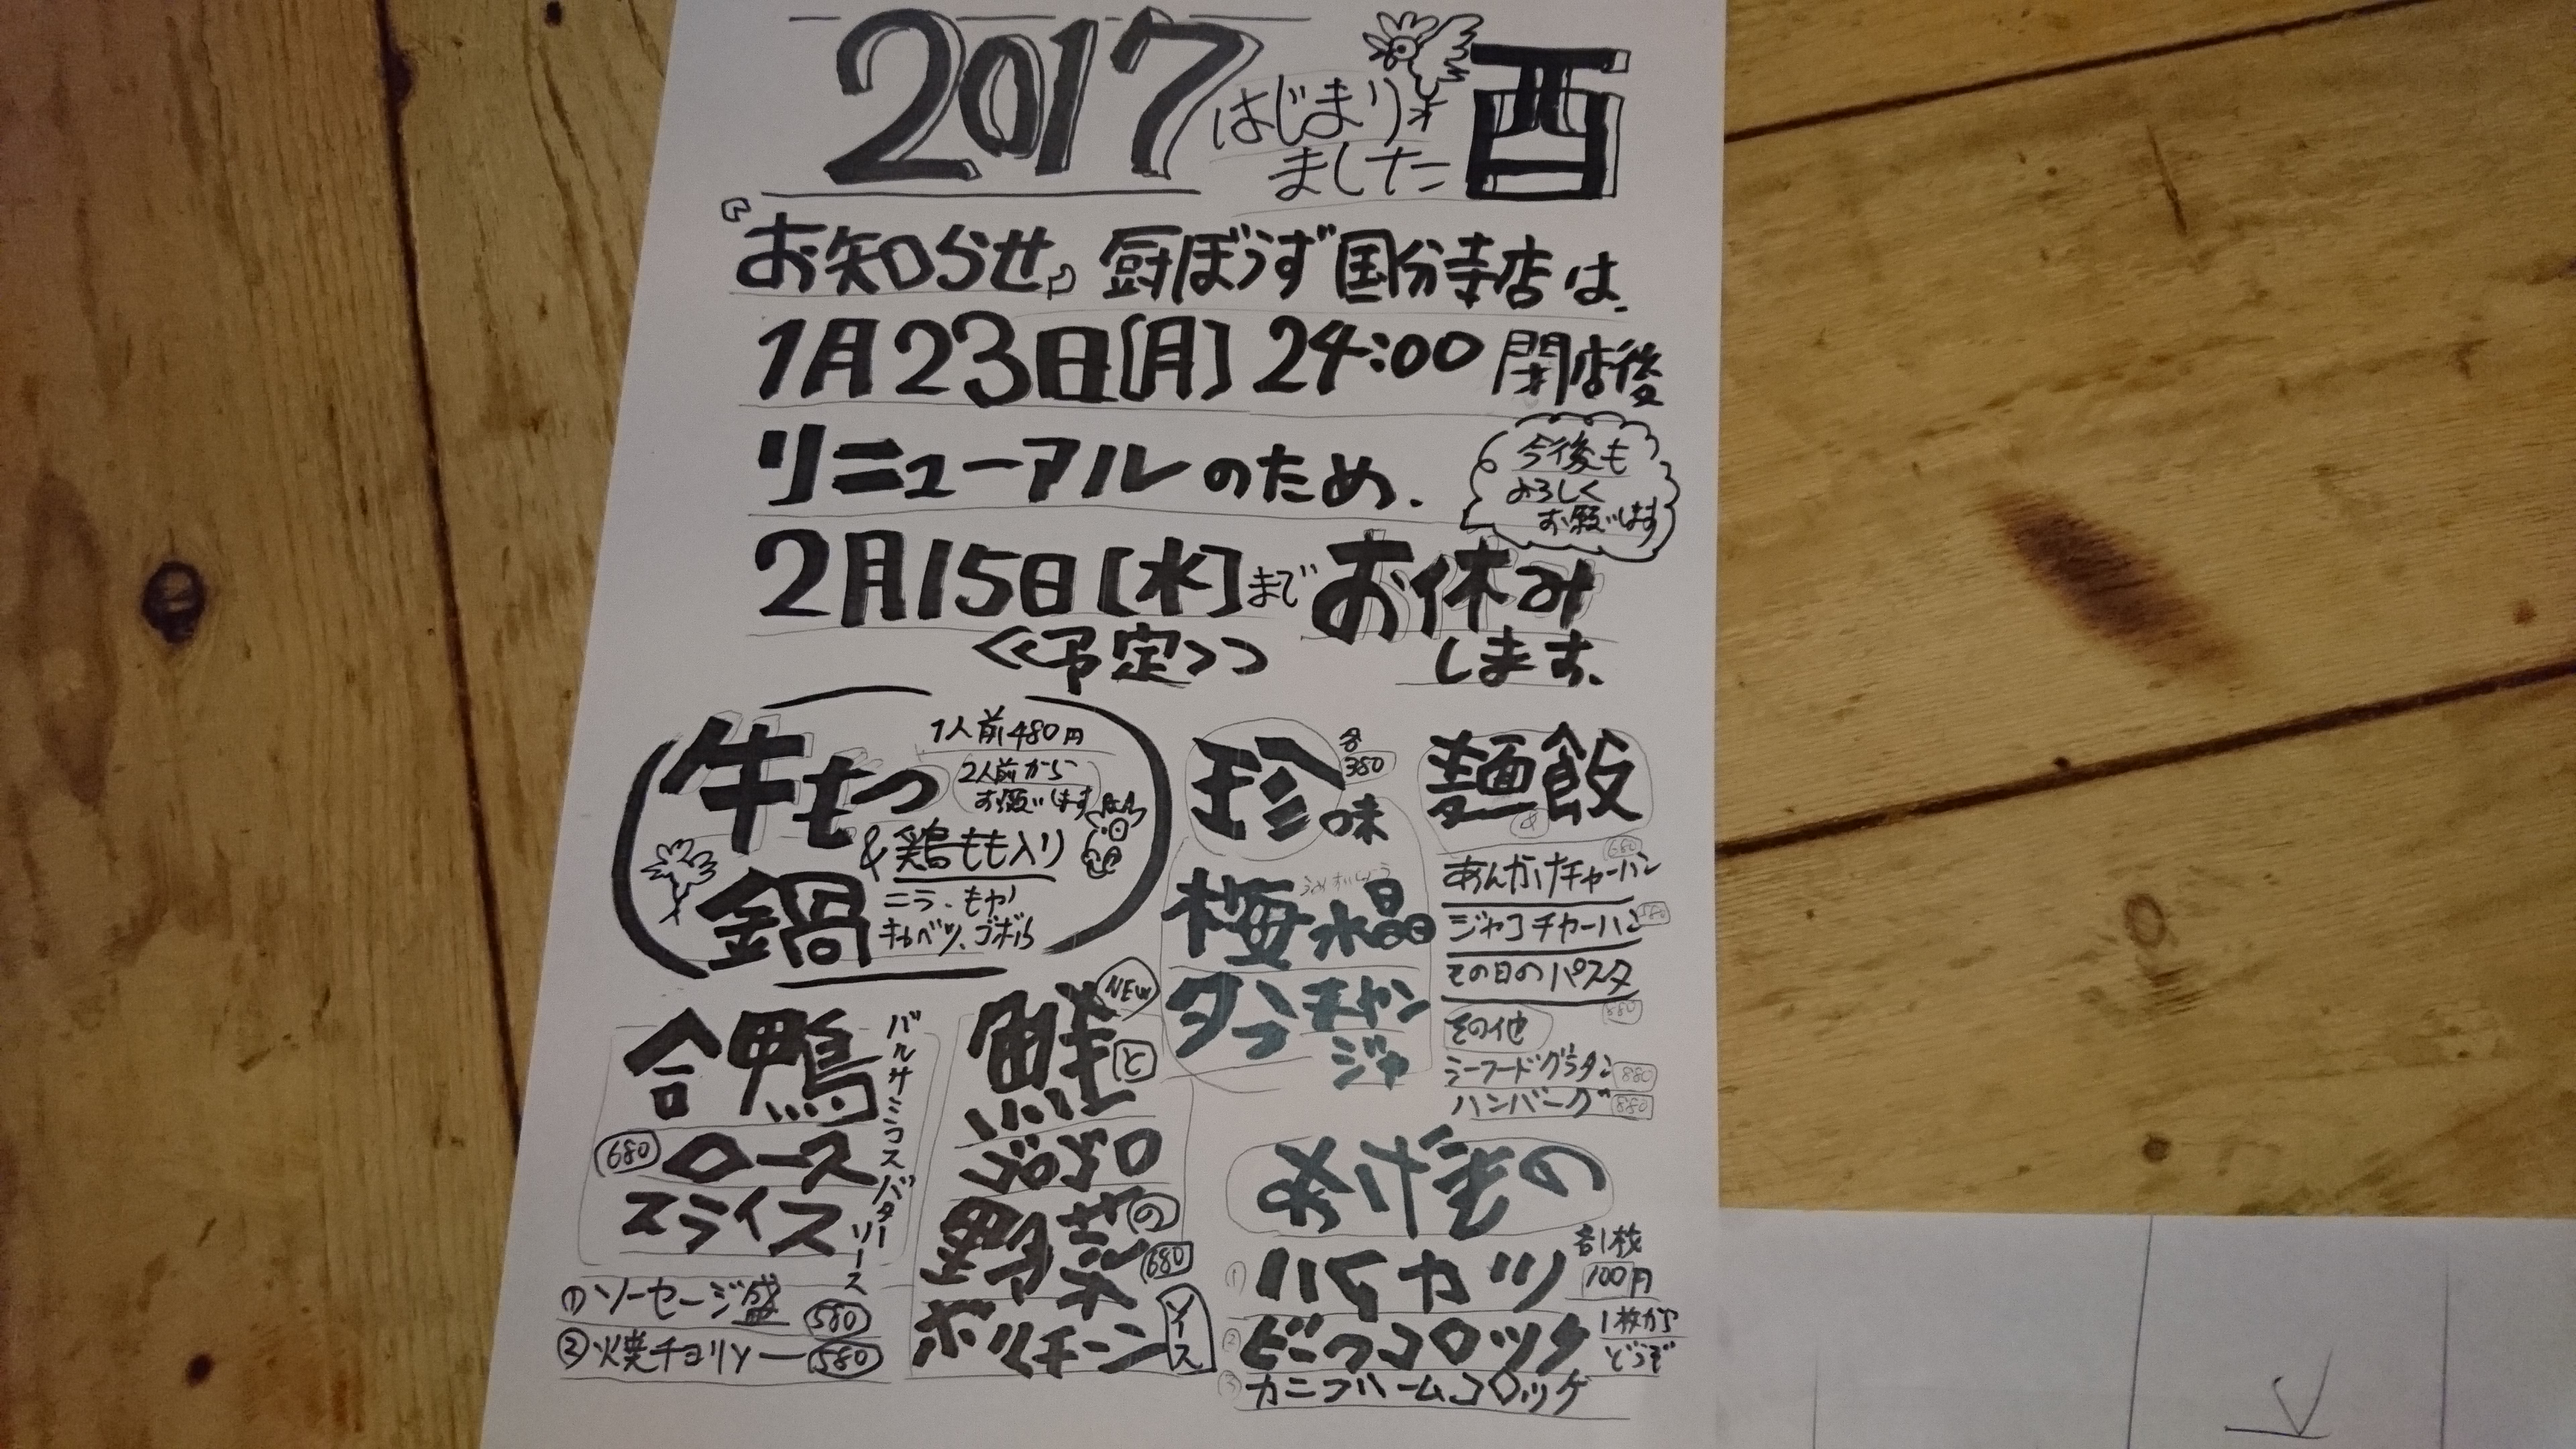 2017 はじまり
ました 酉
『お知らせ』厨ぼうず国分寺店は、
1月23日[月] 24:00 閉店後
リニューアルのため、
今後も
よろしく
お願いします
2月15日[水]まで お休み
<<予定>> します。
牛もつ
鍋
1人前480円
2人前から
お願いします
&鶏もも入り
ニラ、もやし
キャベツ、ゴボウ
珍味
各
380
梅水晶
タコチャン
ジャ
麺&飯
あんかけチャーハン 680
ジャコチャーハン 580
その日のパスタ
880
その他
シーフードグラタン 880
ハンバーグ 880
合鴨
680 ロース
スライス
バルサミコスバターソース
①ソーセージ盛 580
②焼チョリソー 580
NEW
鮮魚と
ゴロゴロ
野菜の
680
ポルチーニ
ソース
あげもの
① ハムカツ
割1枚
100円
② ビーフコロッケ
1枚から
どうぞ
③ カニクリームコロッケ